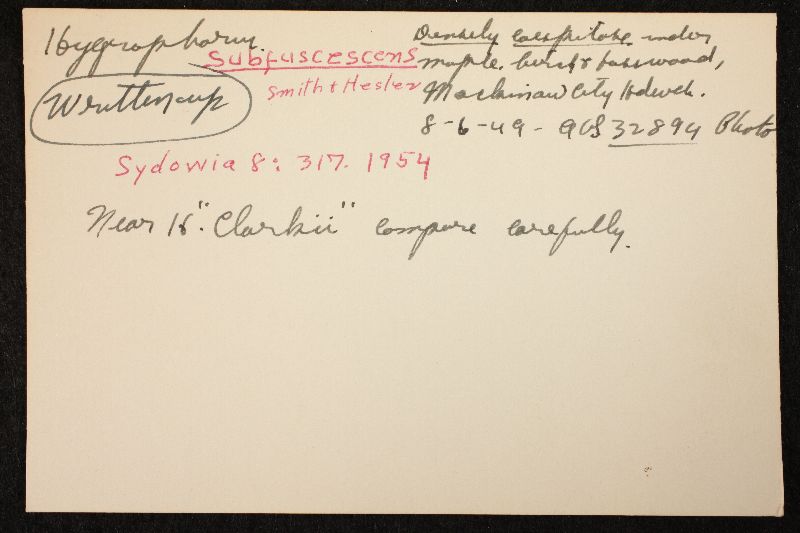 Hygrophorus
subfuscescens
Smith + Hesler
Written up
Sydowia 8: 317. 1954
Densely caespitose under
maple, birch & basswood,
Mackinaw City Hdwds.
8-6-49 - AHS 32894 Photo
Near H. "Clarkii" compare carefully.